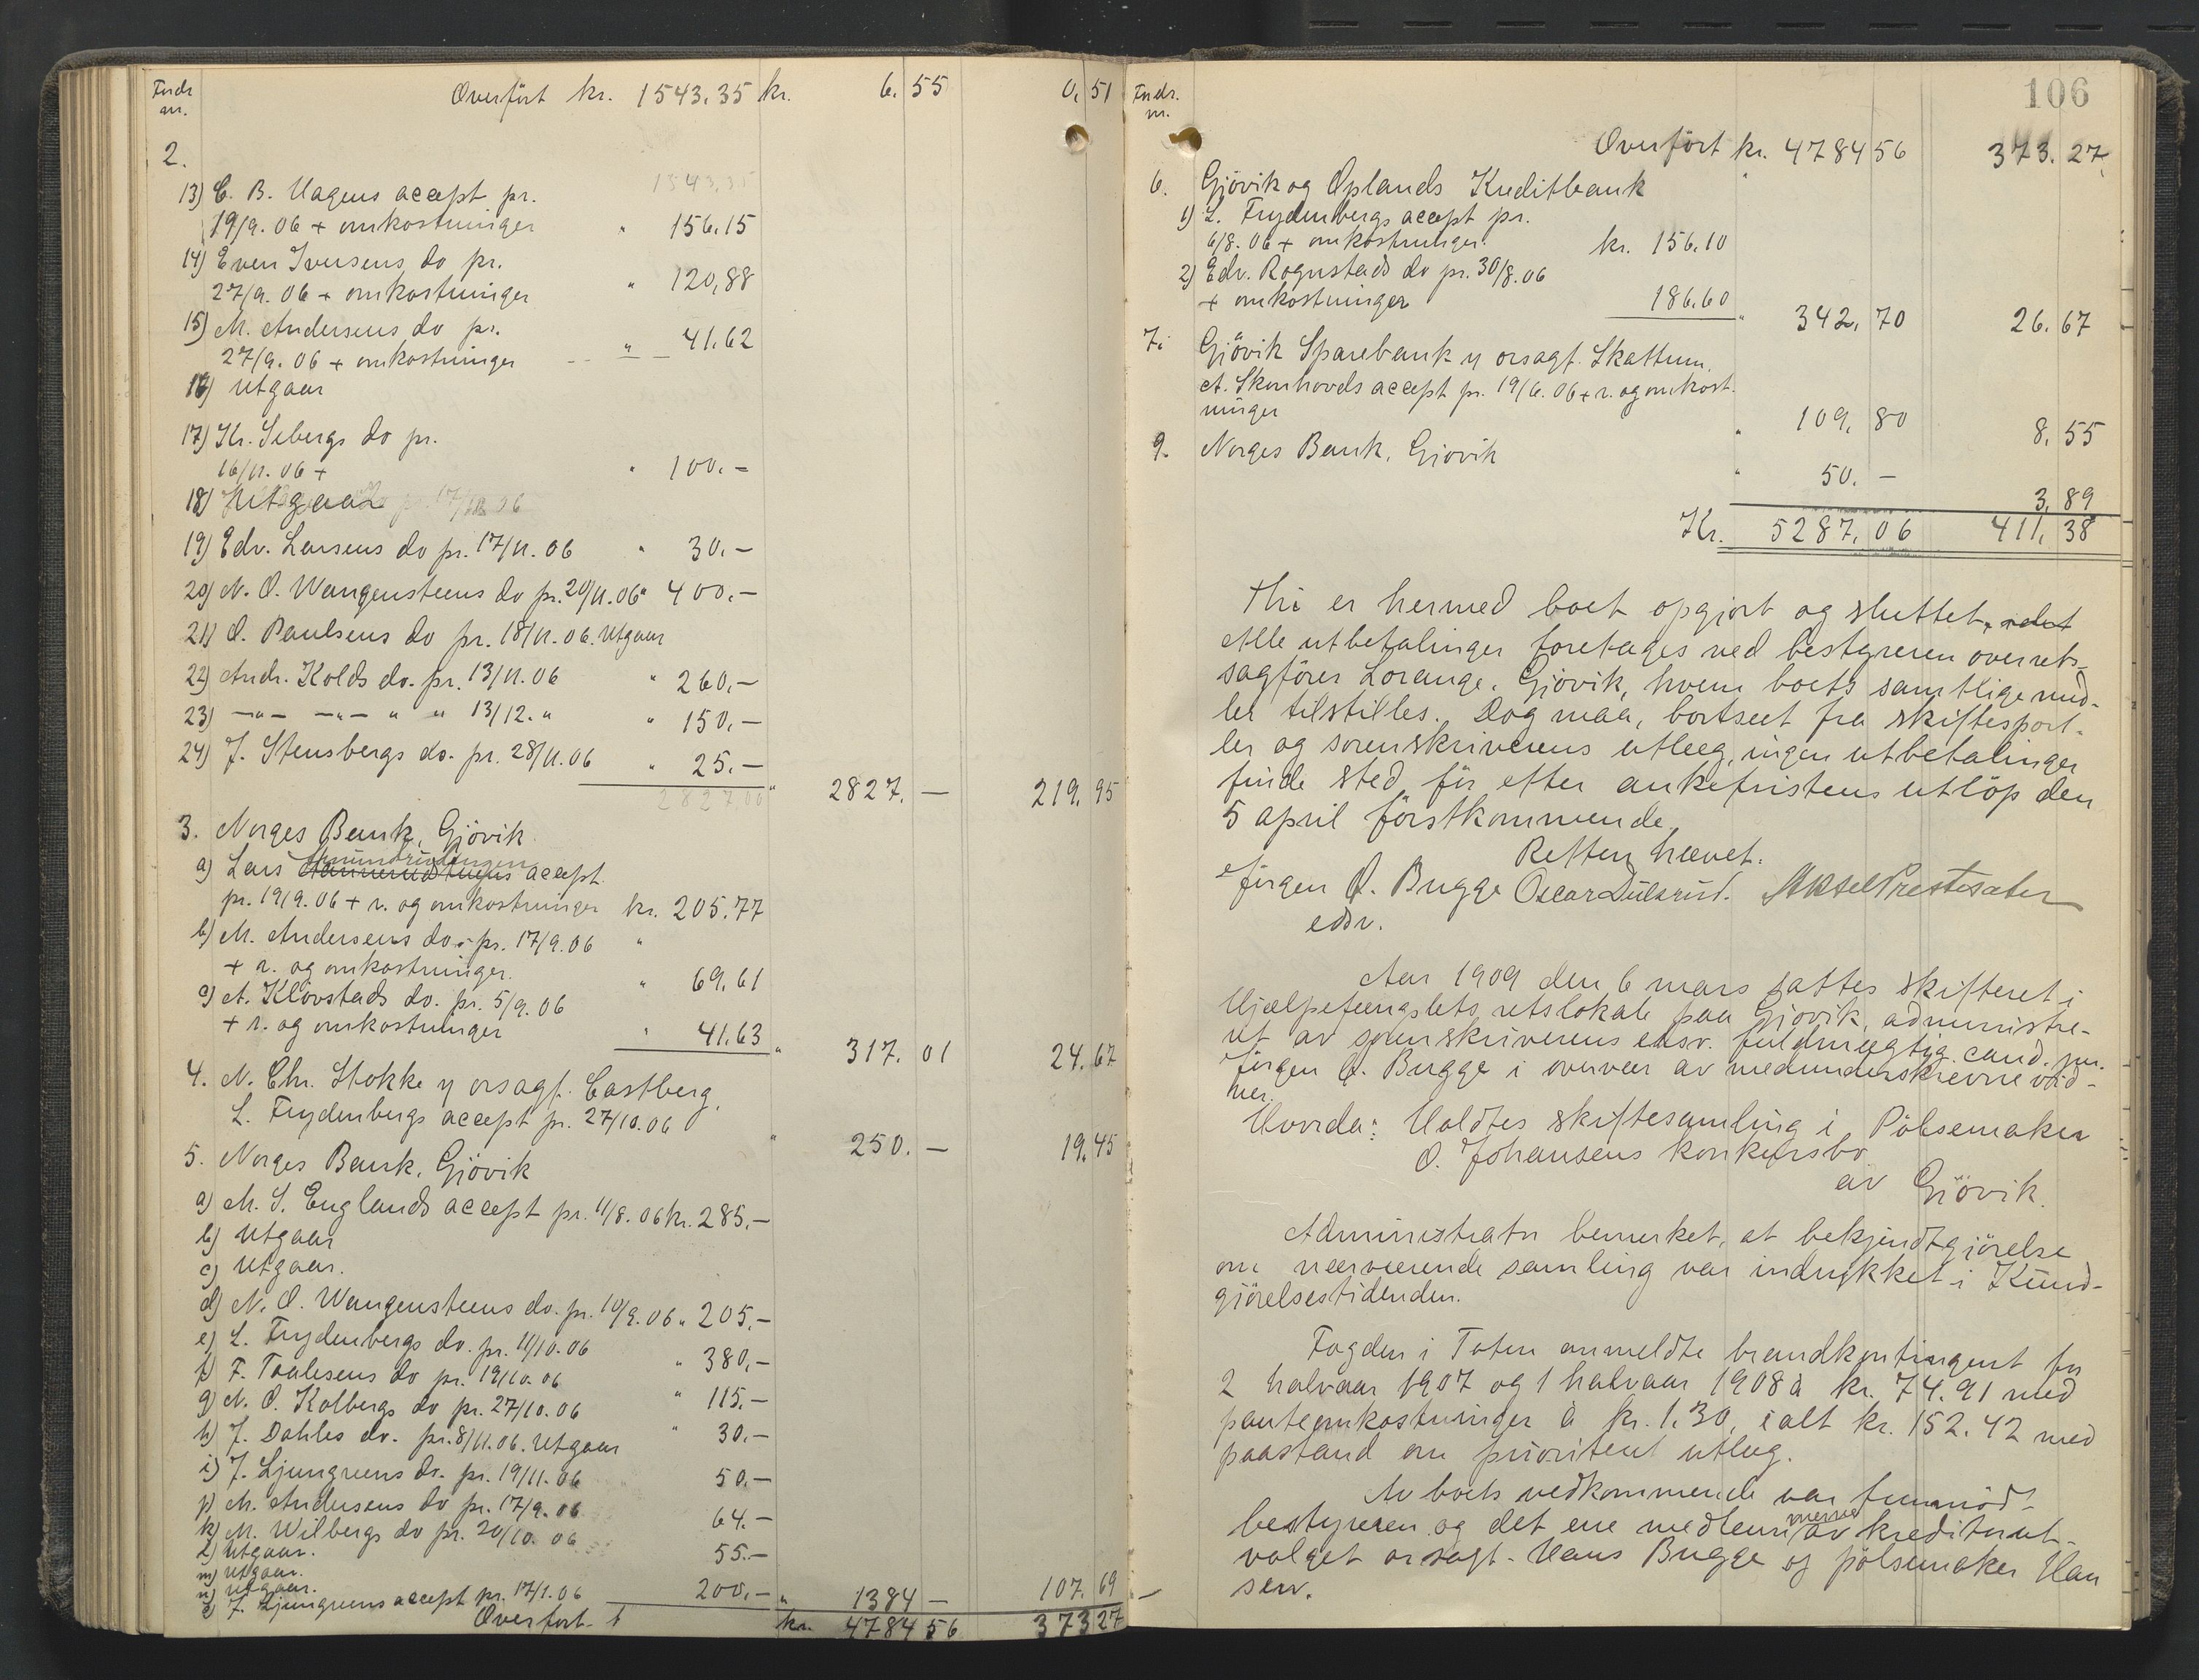 Fndr nr. Overført kr. 1543.35 kr. 6.55 0.51
2.
13) C. B. Hagens accept pr.
19/9. 06 + omkostninger " 156.15
14) Even Iversens do pr.
27/9. 06 + omkostninger " 120,88
15) M. Andersens do pr.
27/9. 06 + omkostninger " 41.62
16) utgaar
17) Kr. Sebergs do pr.
16/11. 06 + " 100.-
18) Utgaar
19) Edv. Larsens do pr. 17/11. 06 " 30.-
20) N. O. Wangensteens do pr. 20/11. 06 " 400.-
21) O. Paulsens do pr. 18/11. 06. Utgaar
22) Andr. Kolds do. pr. 13/11. 06 " 260.-
23) -"- -"- " " 13/12. " " 150.-
24) J. Stensbergs do. pr. 28/11. 06 " 25.-
" 2827. - 219. 95
3. Norges Bank, Gjövik
a) Lars accept
pr. 19/9. 06 + r. og omkostninger kr. 205.77
b) M. Andersens do. pr. 17/9. 06 "
+ r. og omkostninger. " 69.61
c) A. Klövstads do. pr. 5/9. 06
+ r. og omkostninger " 41.63 " 317. 01 24.67
4. N. Chr. Stokke v/ orsagf. Castberg.
L. Frydenbergs accept pr. 27/10. 06 " 250. - 19.45
5. Norges Bank, Gjövik
a) M. S. Englands accept pr. 11/8. 06 kr. 285.-
b) Utgaar
c) Utgaar.
d) N. O. Wangensteens do. pr. 10/9. 06 " 205.-
e) L. Frydenbergs do. pr. 11/10. 06 " 380.-
f) F. Paalesens do pr. 19/10. 06 " 115.-
g) N. O. Kolbergs do pr. 27/10. 06 " 30.-
h) J. Dahles do. pr. 8/11. 06. Utgaar
i) J. Ljungreens do. pr. 19/11. 06 50.-
j) M. Andersens do pr. 17/9. 06 64.-
k) M. Wilbergs do pr. 20/10. 06 55.-
l) Utgaar.
m) Utgaar.
n) Utgaar.
J. Ljungreens accept pr. 17/1. 06 200.- " 1384 - 107. 69
Overført kr. 4784 56 373 27
106
Fndr. nr.
Overført kr. 4784 56 373. 27
6. Gjövik og Oplands Kreditbank
1) L. Frydenbergs accept pr.
6/8. 06 + omkostninger. kr. 156.10
2) Edv. Rognstads do pr. 30/8. 06
+ omkostninger 186.60 " 342, 70 26. 67
7. Gjövik Sparebank v/ orsagf. Skattum.
A. Skonhovds accept pr. 19/6. 06 + r. og omkost-
ninger " 109, 80 8. 55
9. Norges Bank, Gjövik " 50. - 3,89
Kr. 5287, 06 411, 38
Thi er hermed boet opgjort og sluttet,
Alle utbetalinger foretages ved bestyreren overrets-
sagfører Lorange, Gjövik, hvem boets samtlige mid-
ler tilstilles. Dog maa, bortseet fra skiftesport-
ler og sorenskriverens utlæg, ingen utbetalinger
finde sted før efter ankefristens utlöp den
5 april förstkommende.
Retten hævet.
Jørgen A. Bugge Oscar Dulsrud. Aksel Prestesæter
edsv.
Aar 1909 den 6 mars sattes skifteret i
Hjælpefængslets retslokale paa Gjövik, administre-
ret av sorenskriverens edsv. fuldmægtig cand. jur.
Jørgen A. Bugge i overvær av medunderskrevne vid-
ner.
Hvorda: Holdtes skiftesamling i Pölsemaker
O. Johansens konkursbo
av Gjövik.
Administrator bemerket, at bekjendtgjörelse
om nærværende samling var indrykket i Kund-
gjörelsestidenden.
Fogden i Toten anmeldte brandkontingent for
2 halvaar 1907 og 1 halvaar 1908 à kr. 74.91 med
panteomkostninger à kr. 1.30, ialt kr. 152.42 med
paastand om prioritert utlæg.
Av boets vedkommende var fremmöd-
bestyreren og det ene medlem av kreditorut-
valget orsagf. Hans Bugge og pölsemaker Han
sen.